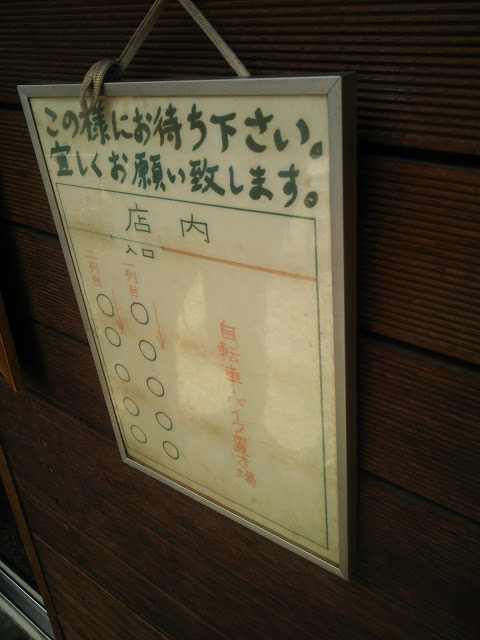 この様にお待ち下さい。
宜しくお願い致します。
店内
入口
二列目
一列目
自転車・バイク置き場